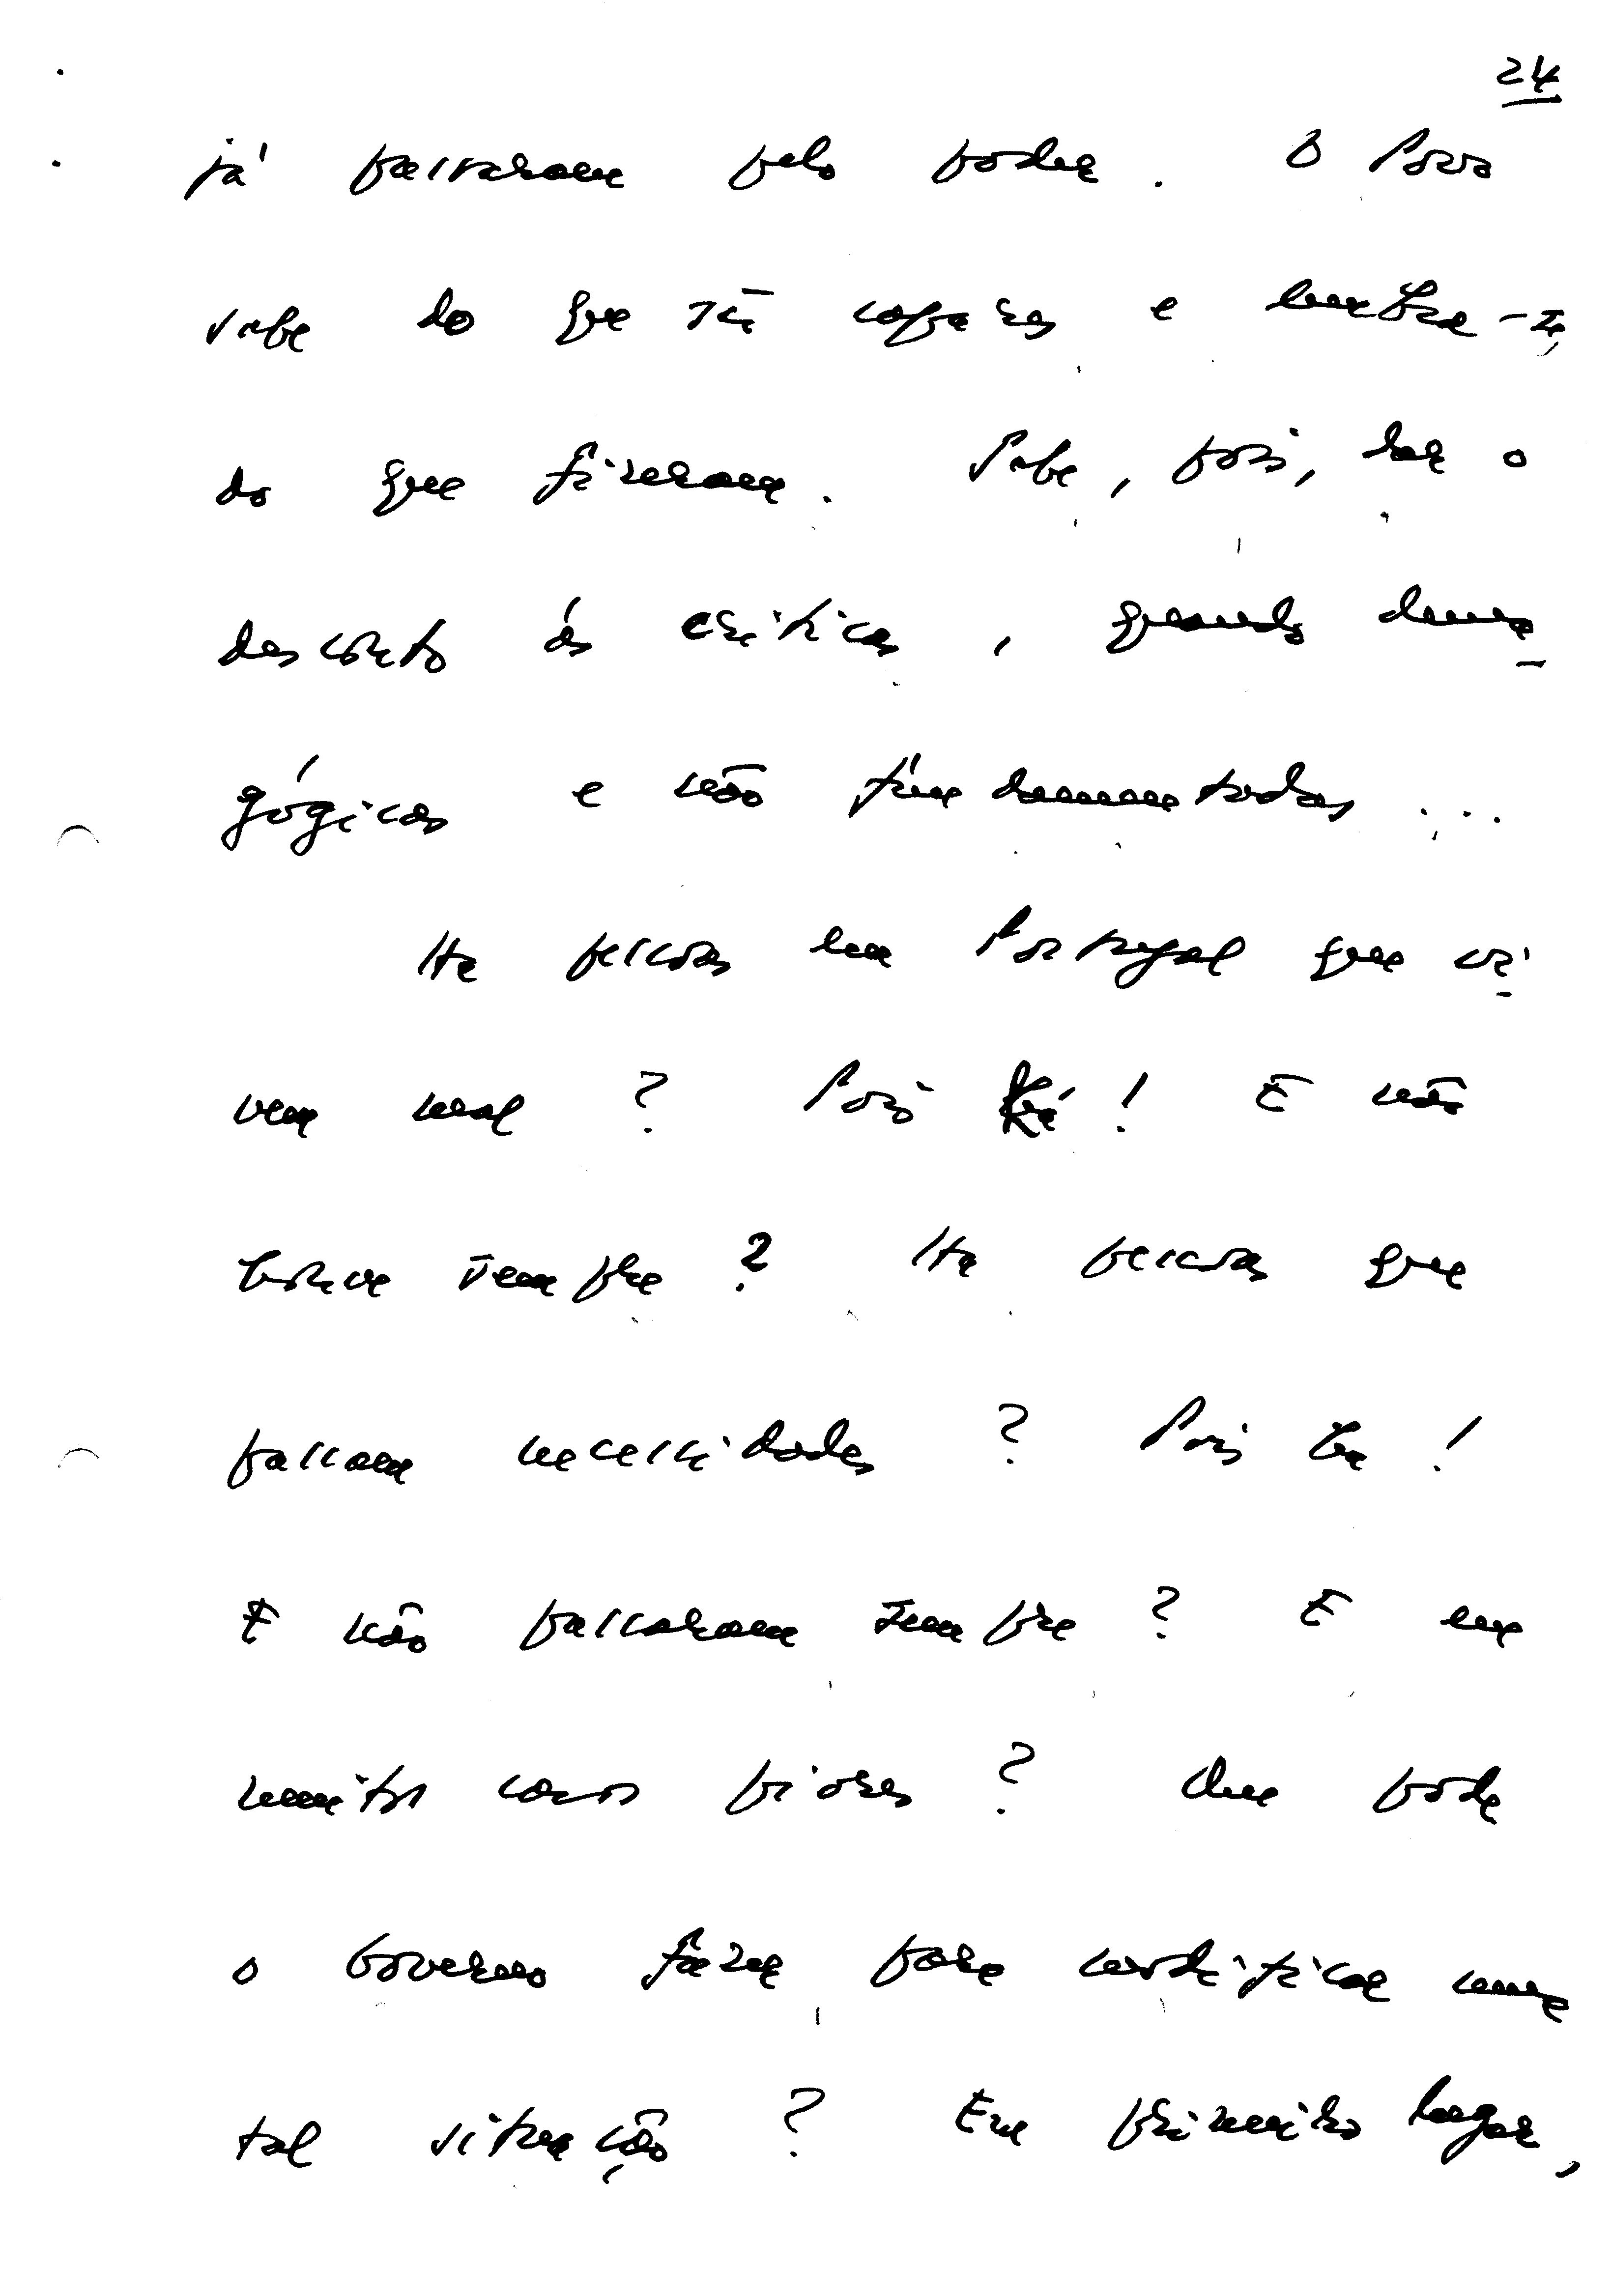 24
já passaram pelo poder. O Povo
sabe do que são capazes e lembra-se,
do que fizeram. Sabe, pois, dar o
desconto às críticas, quando dema-
gógicas e não fundamentadas...
Há pessoas em Portugal que vi-
vem mal? Pois há! E não
houve sempre? Há pessoas que
passam necessidades? Pois há!
E não passaram sempre? E em
muitos casos piores? Que pode
o Governo fazer para modificar uma
tal situação? Em primeiro lugar,